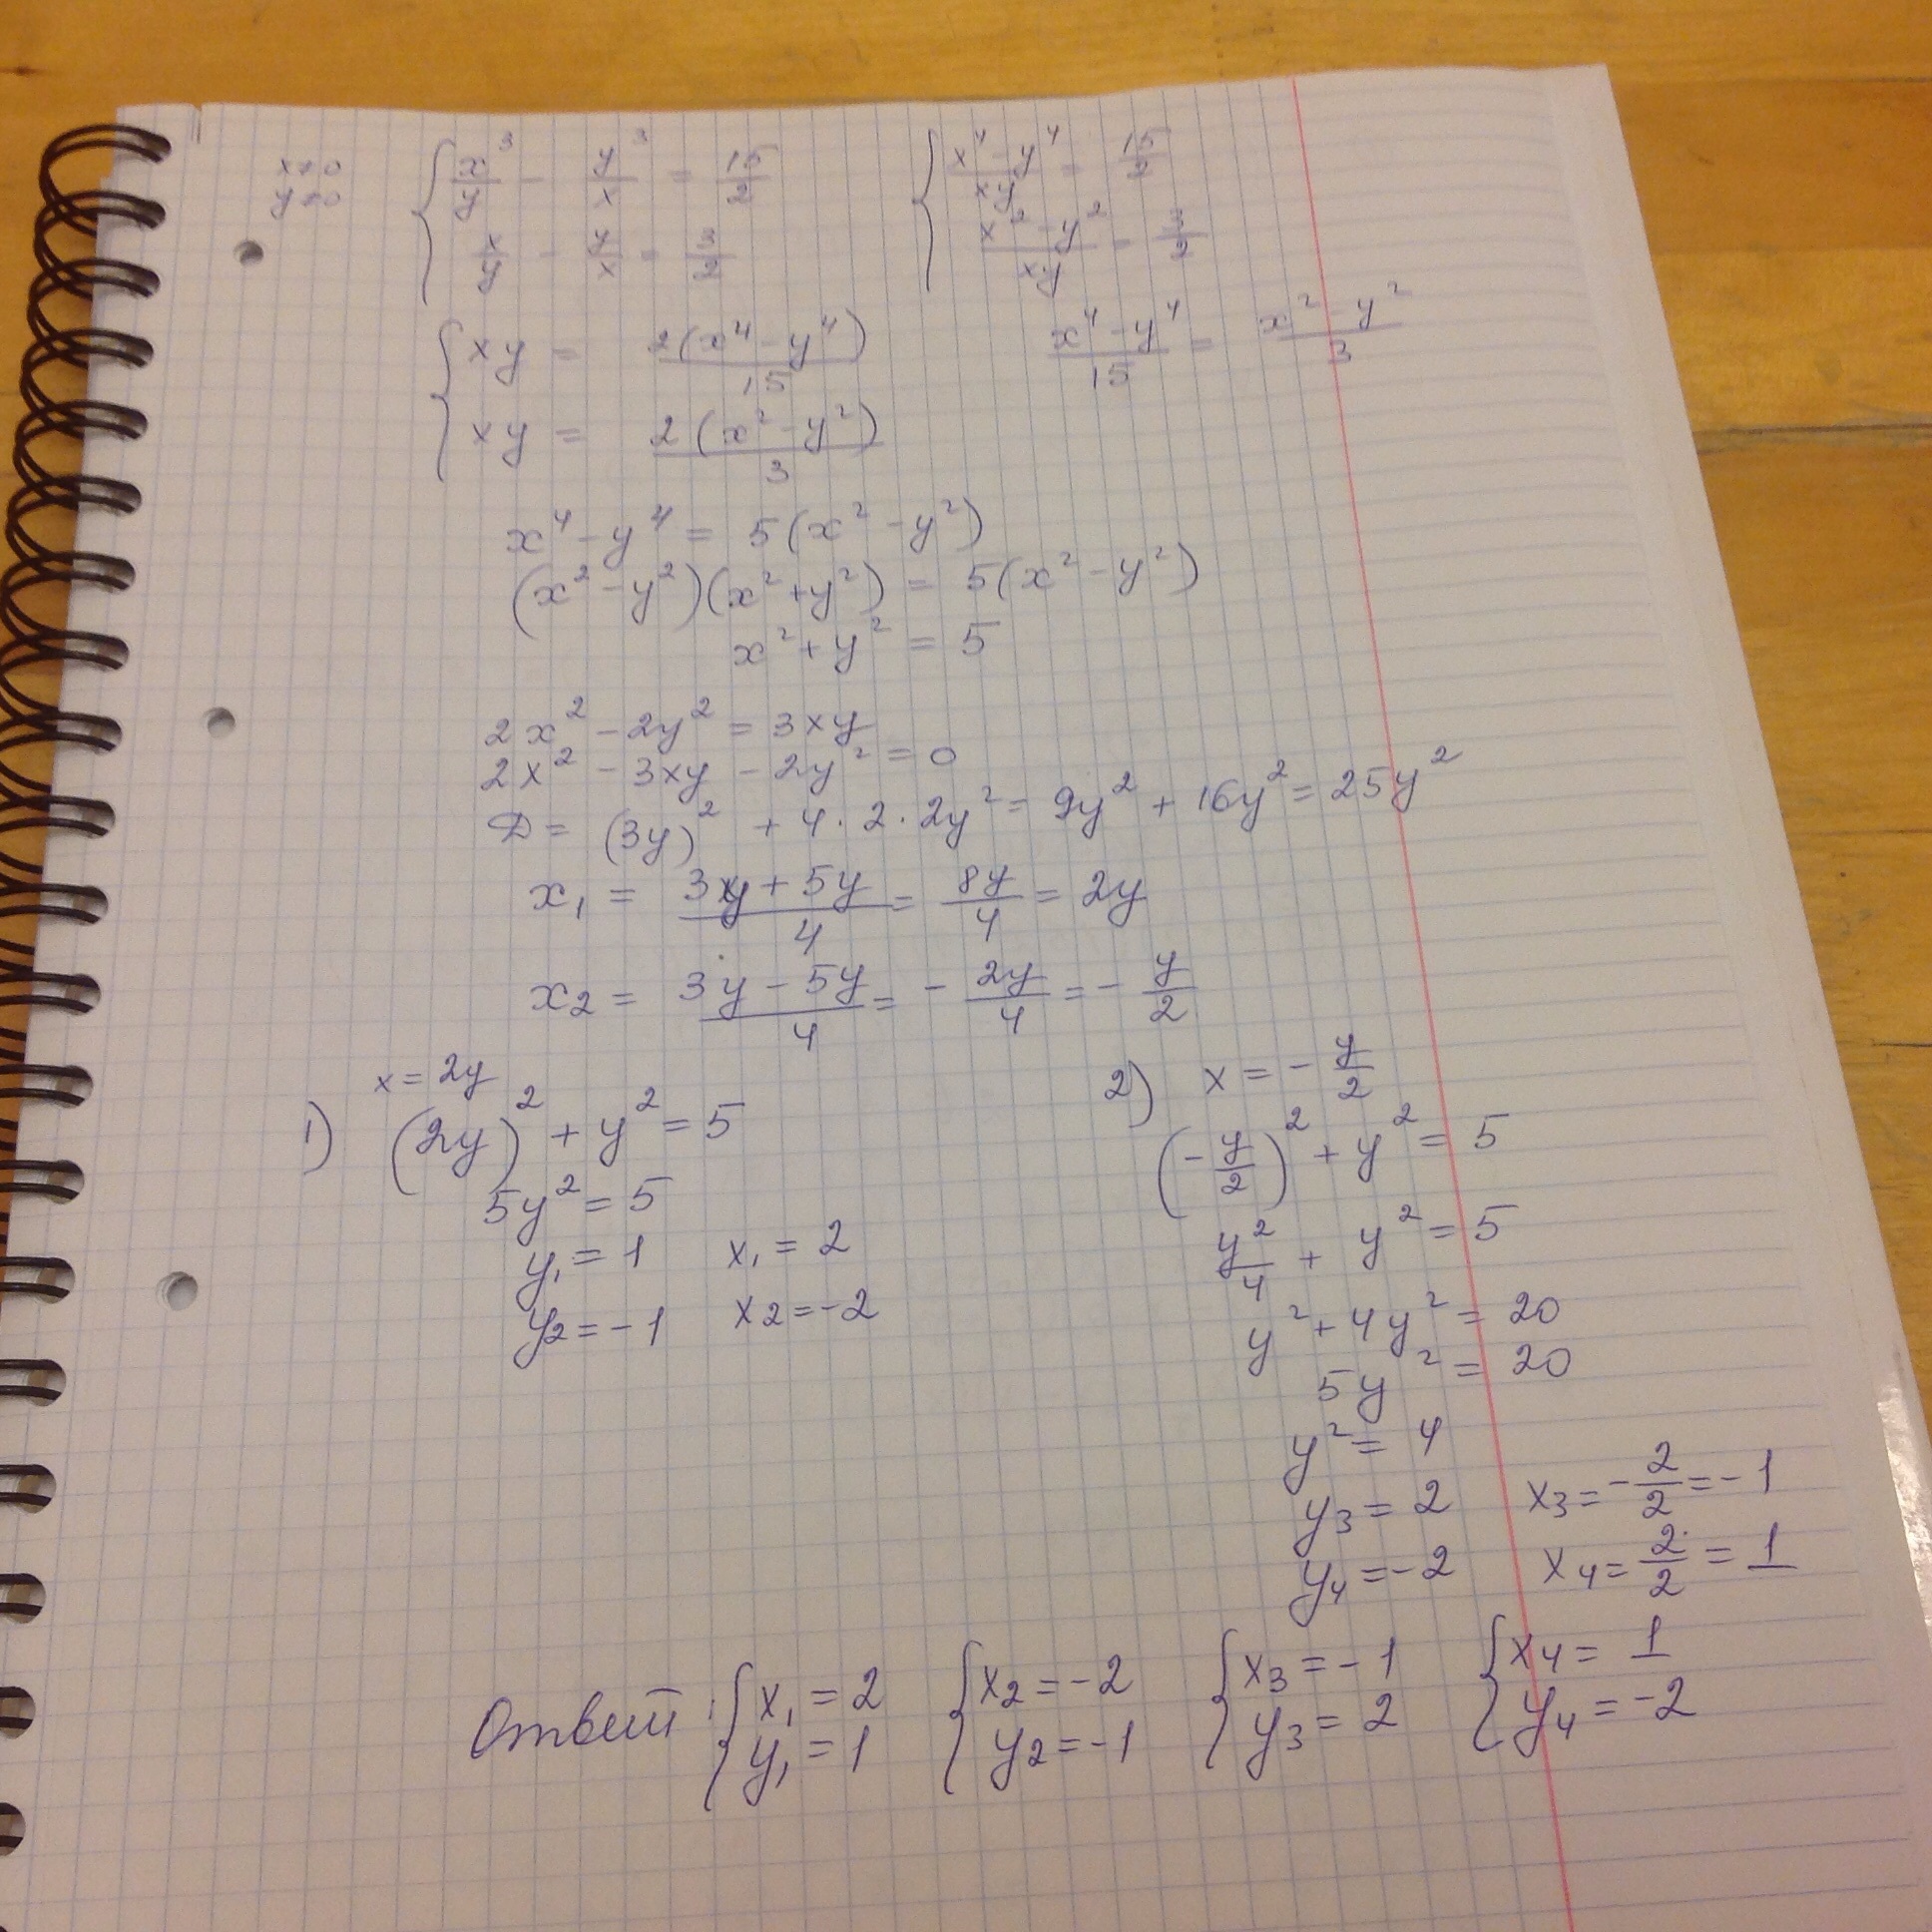 x≠0
y≠0
{ x³/y - y³/x = 15/2
x/y - y/x = 3/2
{ (x⁴-y⁴)/xy = 15/2
(x²-y²)/xy = 3/2
{ xy = 2(x⁴-y⁴)/15
xy = 2(x²-y²)/3
(x⁴-y⁴)/15 = (x²-y²)/3
x⁴-y⁴ = 5(x²-y²)
(x²-y²)(x²+y²) = 5(x²-y²)
x²+y² = 5
2x²-2y² = 3xy
2x²-3xy-2y² = 0
D = (3y)² + 4·2·2y² = 9y² + 16y² = 25y²
x₁ = (3y+5y)/4 = 8y/4 = 2y
x₂ = (3y-5y)/4 = -2y/4 = -y/2
1) x = 2y
(2y)² + y² = 5
5y² = 5
y₁ = 1 x₁ = 2
y₂ = -1 x₂ = -2
2) x = -y/2
(-y/2)² + y² = 5
y²/4 + y² = 5
y² + 4y² = 20
5y² = 20
y² = 4
y₃ = 2 x₃ = -2/2 = -1
y₄ = -2 x₄ = 2/2 = 1
Ответ: { x₁ = 2 { x₂ = -2 { x₃ = -1 { x₄ = 1
y₁ = 1 y₂ = -1 y₃ = 2 y₄ = -2